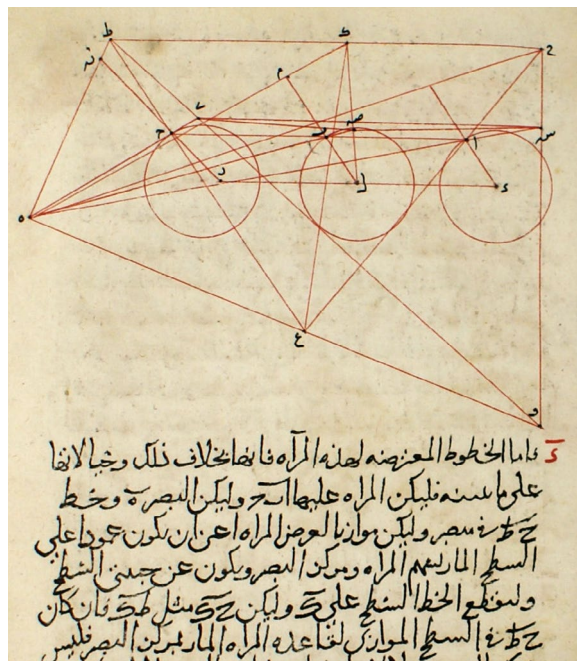 ط
ك
ح
ن
م
ص
س
ا
ب
د
ل
ء
ه
ع
فاما الخطوط المعترضه لهذه المرآه فانها بخلاف ذلك وخيالاتها
على ما نبينه فليكن المراه عليها اب ح وليكن البصر ه وخط
ح ط في مبصر وليكن موازيا لعرض المراه اعني ان يكون عمودا على
السطح المار بسهم المراه ومركز البصر ويكون عن جنبتي السطح
وليقطع الخط السطح على ك وليكن ح ك مثل ط ك فان كان
ح ط في السطح الموازي لقاعده المراه المار بمركز البصر فليس